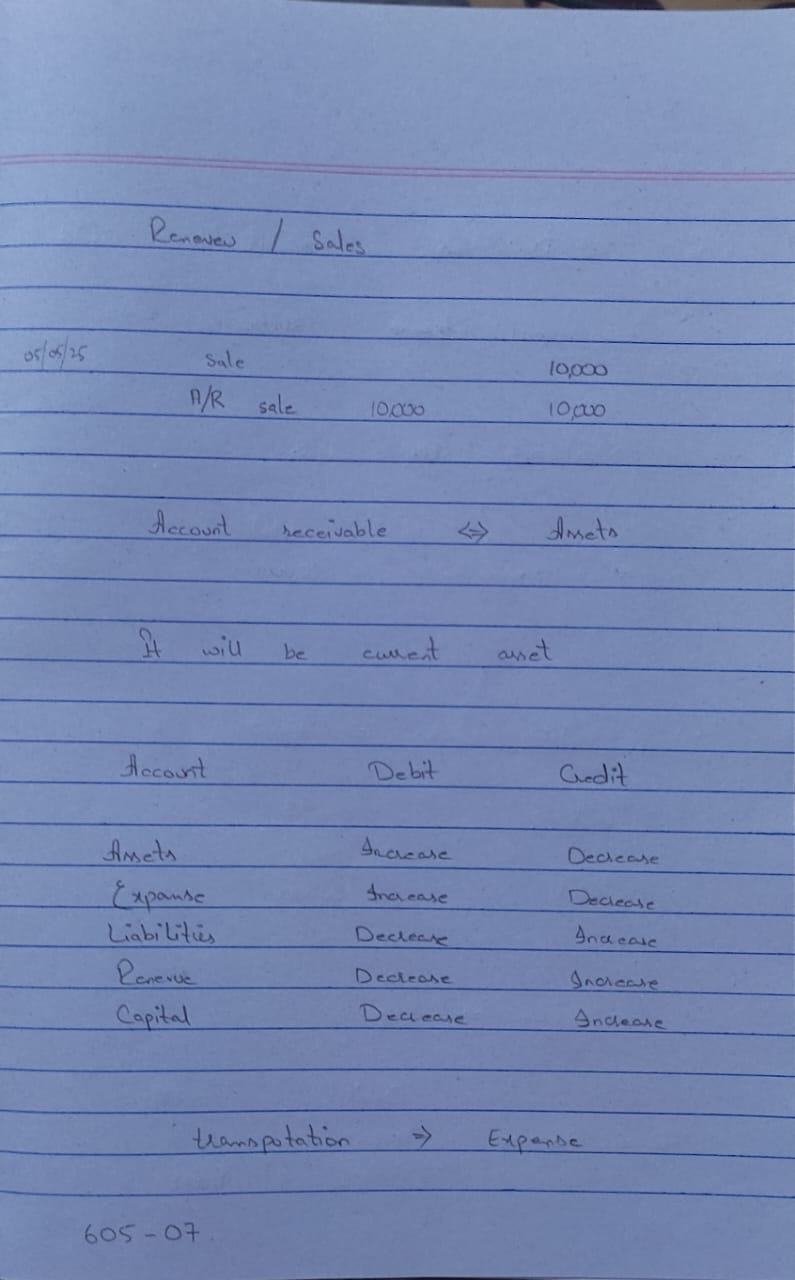 Renevew / Sales
05/05/25 Sale 10,000
A/R sale 10,000 10,000
Account receivable <=> Assets
It will be current asset
Account Debit Credit
Assets Increase Decrease
Expanse Increase Decrease
Liabilities Decrease Increase
Renevue Decrease Increase
Capital Decrease Increase
transpotation => Expense
605-07